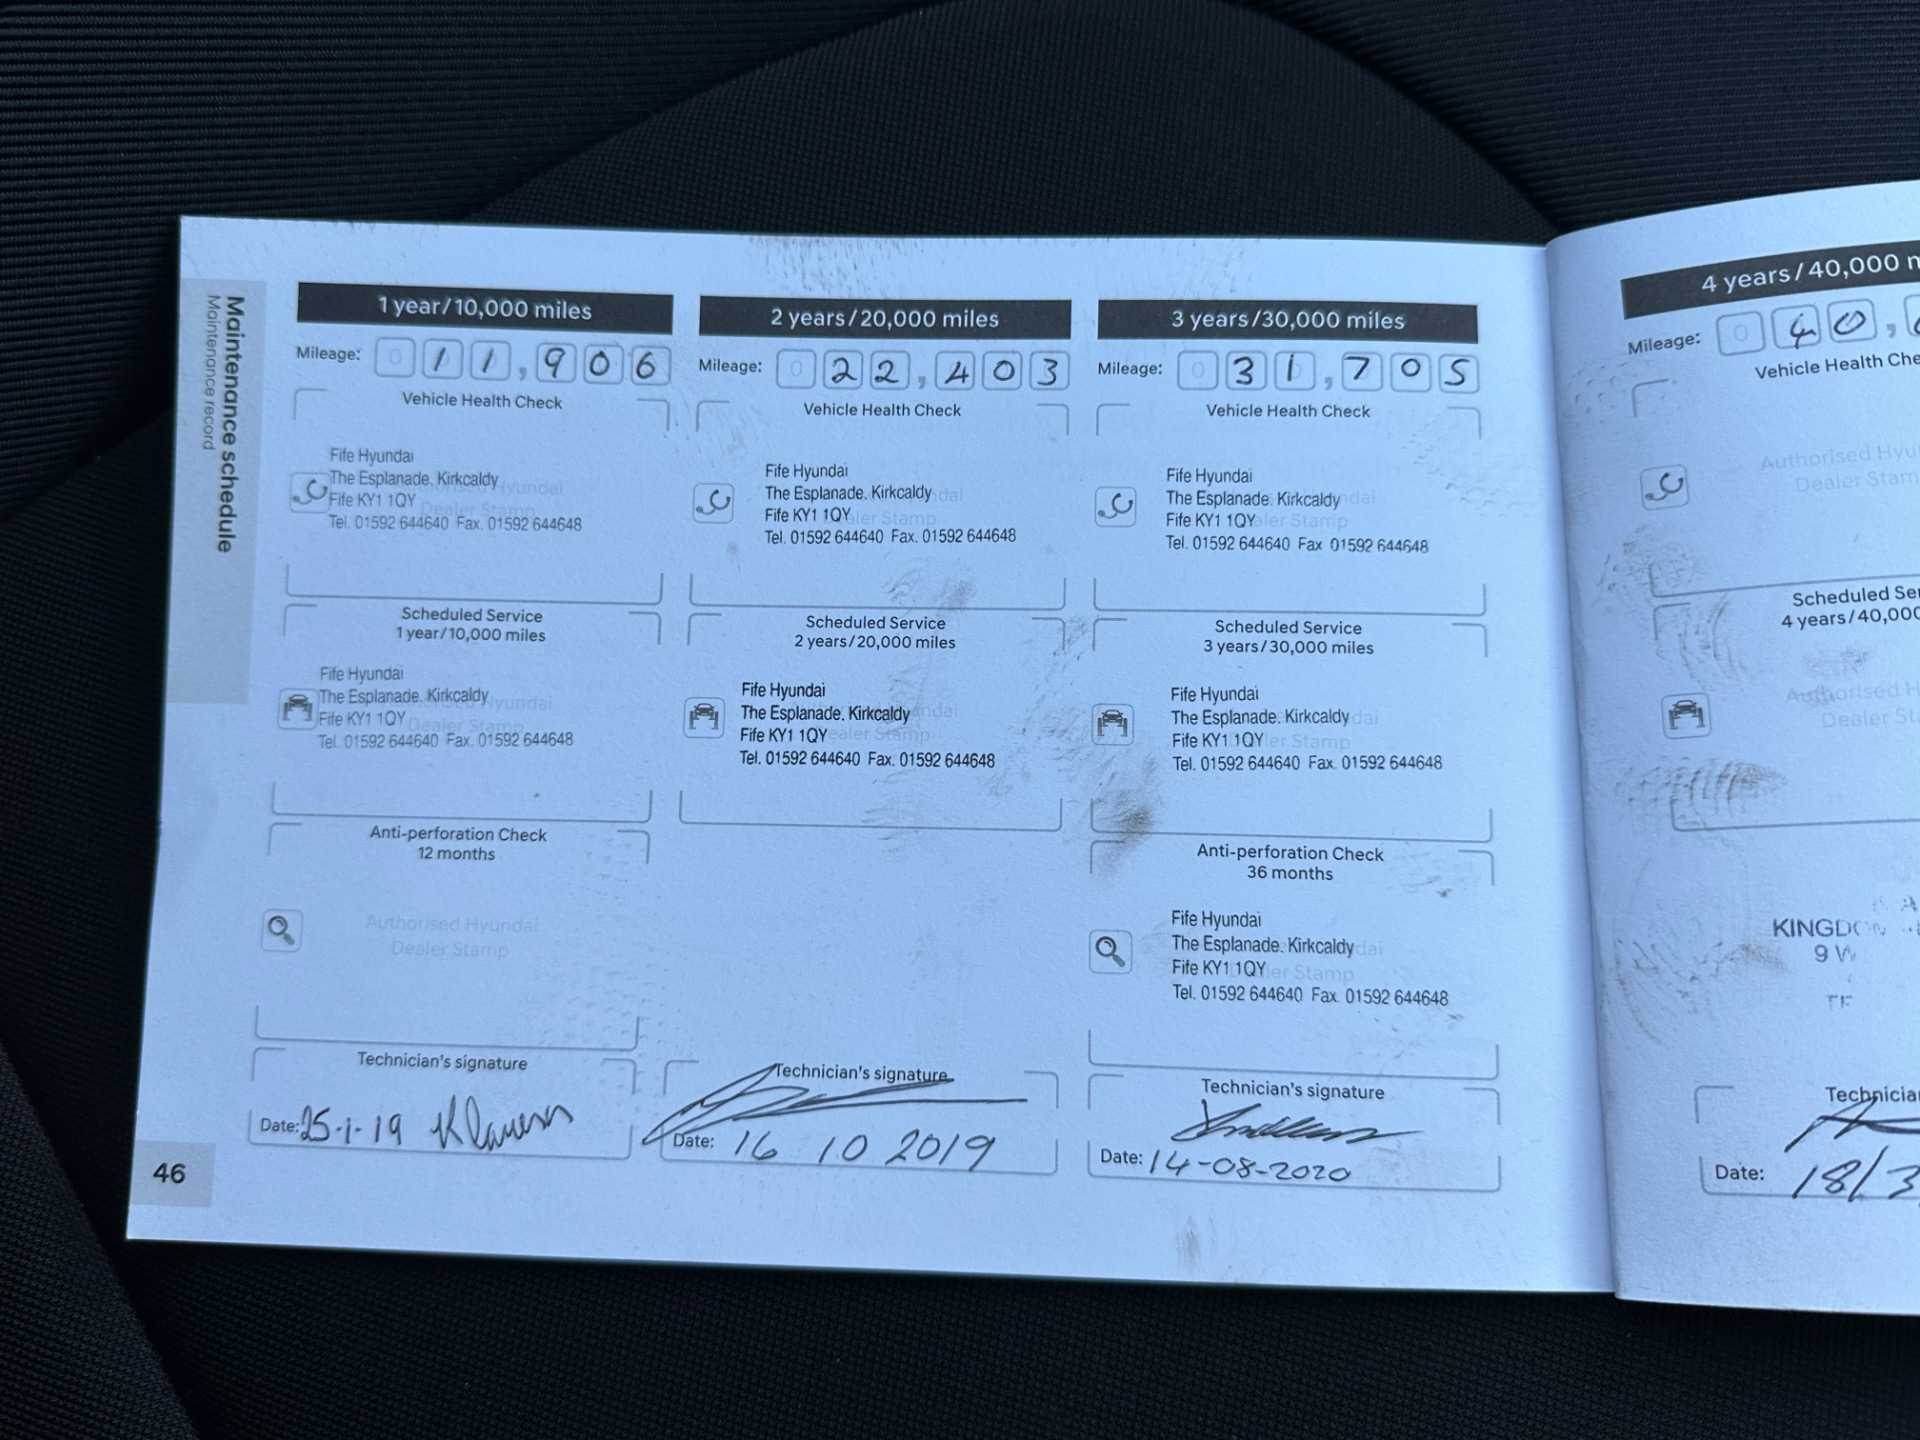 Maintenance schedule
Maintenance record
1 year/10,000 miles
Mileage: 0 1 1 , 9 0 6
Vehicle Health Check
Fife Hyundai
The Esplanade. Kirkcaldy
Fife KY1 1QY
Authorised Hyundai
Dealer Stamp
Tel. 01592 644640 Fax. 01592 644648
Scheduled Service
1 year/10,000 miles
Fife Hyundai
The Esplanade. Kirkcaldy
Fife KY1 1QY
Authorised Hyundai
Dealer Stamp
Tel. 01592 644640 Fax. 01592 644648
Anti-perforation Check
12 months
Authorised Hyundai
Dealer Stamp
Technician's signature
Date: 25-1-19
46
2 years/20,000 miles
Mileage: 0 2 2 , 4 0 3
Vehicle Health Check
Fife Hyundai
The Esplanade. Kirkcaldy
Fife KY1 1QY
Dealer Stamp
Tel. 01592 644640 Fax. 01592 644648
Scheduled Service
2 years/20,000 miles
Fife Hyundai
The Esplanade. Kirkcaldy
Fife KY1 1QY
Dealer Stamp
Tel. 01592 644640 Fax. 01592 644648
Technician's signature
Date: 16 10 2019
3 years/30,000 miles
Mileage: 0 3 1 , 7 0 5
Vehicle Health Check
Fife Hyundai
The Esplanade. Kirkcaldy
Fife KY1 1QY
Dealer Stamp
Tel. 01592 644640 Fax 01592 644648
Scheduled Service
3 years/30,000 miles
Fife Hyundai
The Esplanade. Kirkcaldy
Fife KY1 1QY
Dealer Stamp
Tel. 01592 644640 Fax. 01592 644648
Anti-perforation Check
36 months
Fife Hyundai
The Esplanade. Kirkcaldy
Fife KY1 1QY
Dealer Stamp
Tel. 01592 644640 Fax. 01592 644648
Technician's signature
Date: 14-08-2020
4 years/40,000 m
Mileage: 0 4 0 ,
Vehicle Health Che
Authorised Hyu
Dealer Stam
Scheduled Se
4 years/40,000
Authorised H
Dealer St
KINGDO
9 W
Technicia
Date: 18/3